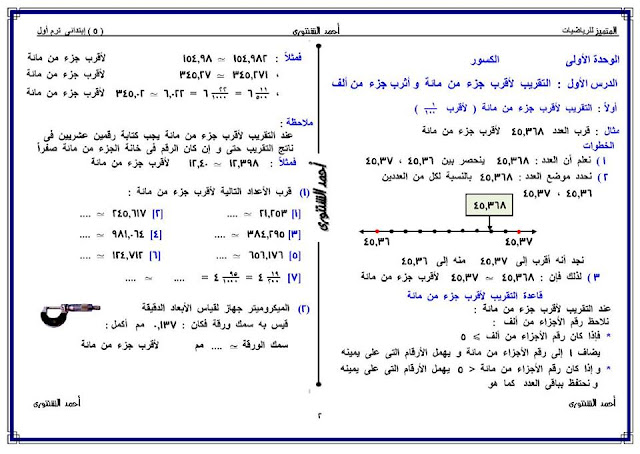 المتميز للرياضيات
أحمد الشنتورى
( ٥ ) إبتدائى ترم أول
الوحدة الأولى
الكسور
الدرس الأول : التقريب لأقرب جزء من مائة و أقرب جزء من ألف
أولاً : التقريب لأقرب جزء من مائة ( لأقرب ١/١٠٠ )
مثال : قرب العدد ٤٥,٣٦٨ لأقرب جزء من مائة
الخطوات
١ ) نعلم أن العدد : ٤٥,٣٦٨ ينحصر بين ٤٥,٣٦ ، ٤٥,٣٧
٢ ) نحدد موضع العدد : ٤٥,٣٦٨ بالنسبة لكل من العددين
٤٥,٣٦ ، ٤٥,٣٧
٤٥,٣٦٨
٤٥,٣٦ ٤٥,٣٧
نجد أنه أقرب إلى ٤٥,٣٧ منه إلى ٤٥,٣٦
٣ ) لذلك فإن : ٤٥,٣٦٨ ≃ ٤٥,٣٧ لأقرب جزء من مائة
قاعدة التقريب لأقرب جزء من مائة
عند التقريب لأقرب جزء من مائة :
نلاحظ رقم الأجزاء من ألف :
* فإذا كان رقم الأجزاء من ألف ⩾ ٥
يضاف ١ إلى رقم الأجزاء من مائة و يهمل الأرقام التى على يمينه
* و إذا كان رقم الأجزاء من مائة < ٥ يهمل الأرقام التى على يمينه
و نحتفظ بباقى العدد كما هو
فمثلاً : ١٥٤,٩٨٢ ≃ ١٥٤,٩٨ لأقرب جزء من مائة
، ٣٤٥,٢٧١ ≃ ٣٤٥,٢٧ لأقرب جزء من مائة
، ٦ ١١/٥٠٠ = ٦ ٢٢/١٠٠٠ = ٦,٠٢٢ ≃ ٣٤٥,٠٢ لأقرب جزء من مائة
ملاحظة :
عند التقريب لأقرب جزء من مائة يجب كتابة رقمين عشريين فى
ناتج التقريب حتى و إن كان الرقم فى خانة الجزء من مائة صفراً
فمثلاً : ١٢,٣٩٨ ≃ ١٢,٤٠ لأقرب جزء من مائة
(١) قرب الأعداد التالية لأقرب جزء من مائة :
[١] ٢١,٢٥٣ ≃ .... [٢] ٢٤٥,٦١٧ ≃ ....
[٣] ٣٨٤,٢٩٥ ≃ .... [٤] ٩٨١,٠٦٤ ≃ ....
[٥] ٦٥٦,١٧٦ ≃ .... [٦] ١٢٤,٧١٢ ≃ ....
[٧] ٤ ١٩/٢٠٠ = ٤ ٩٥/١٠٠٠ = .... ≃ ....
(٢) الميكروميتر جهاز لقياس الأبعاد الدقيقة
قيس به سمك ورقة فكان : ٠,١٣٧ مم أكمل :
سمك الورقة ≃ .... مم لأقرب جزء من مائة
أحمد الشنتورى
أحمد الشنتورى
أحمد الشنتورى
٢